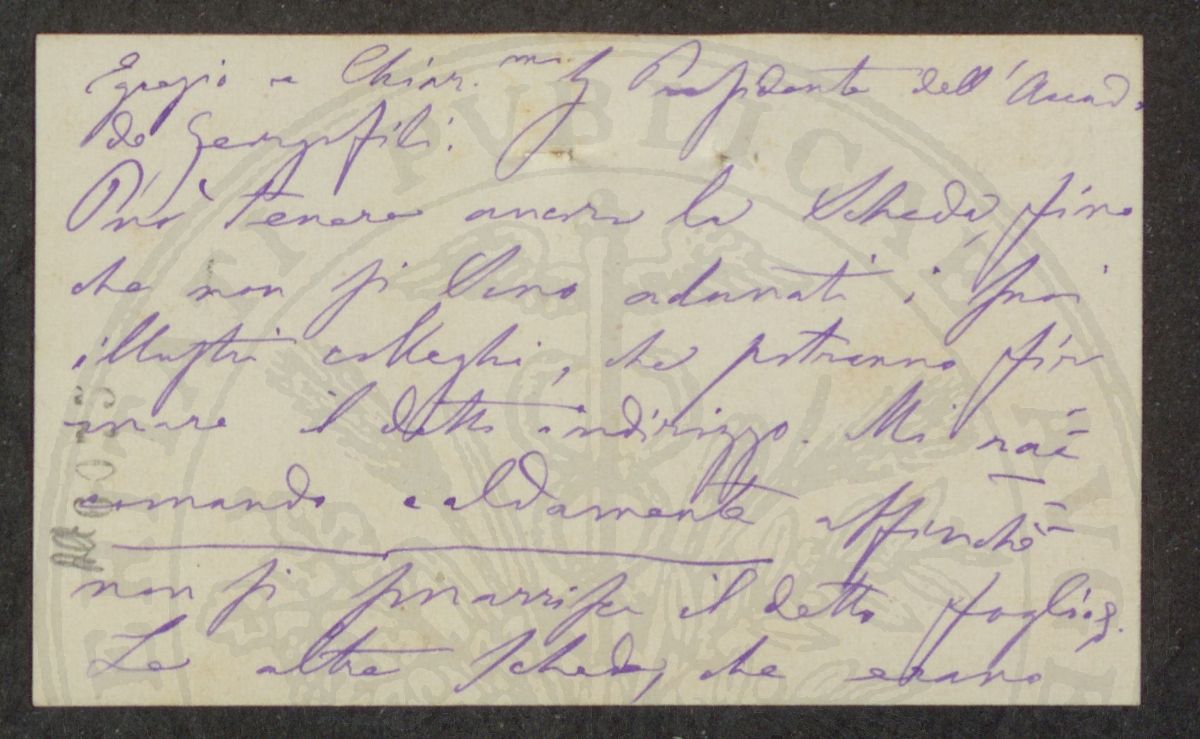 Egregio e Chiar.mo Sig Presidente dell'Accad.
de Georgofili.
Può tenere ancora la Scheda, fino
che non si Sono adunati i suoi
illustri colleghi, che potranno fir
mare il detto indirizzo. Mi rac=
comando caldamente affinchè=
non si smarrisca il detto foglio.
Le altre schede, che erano